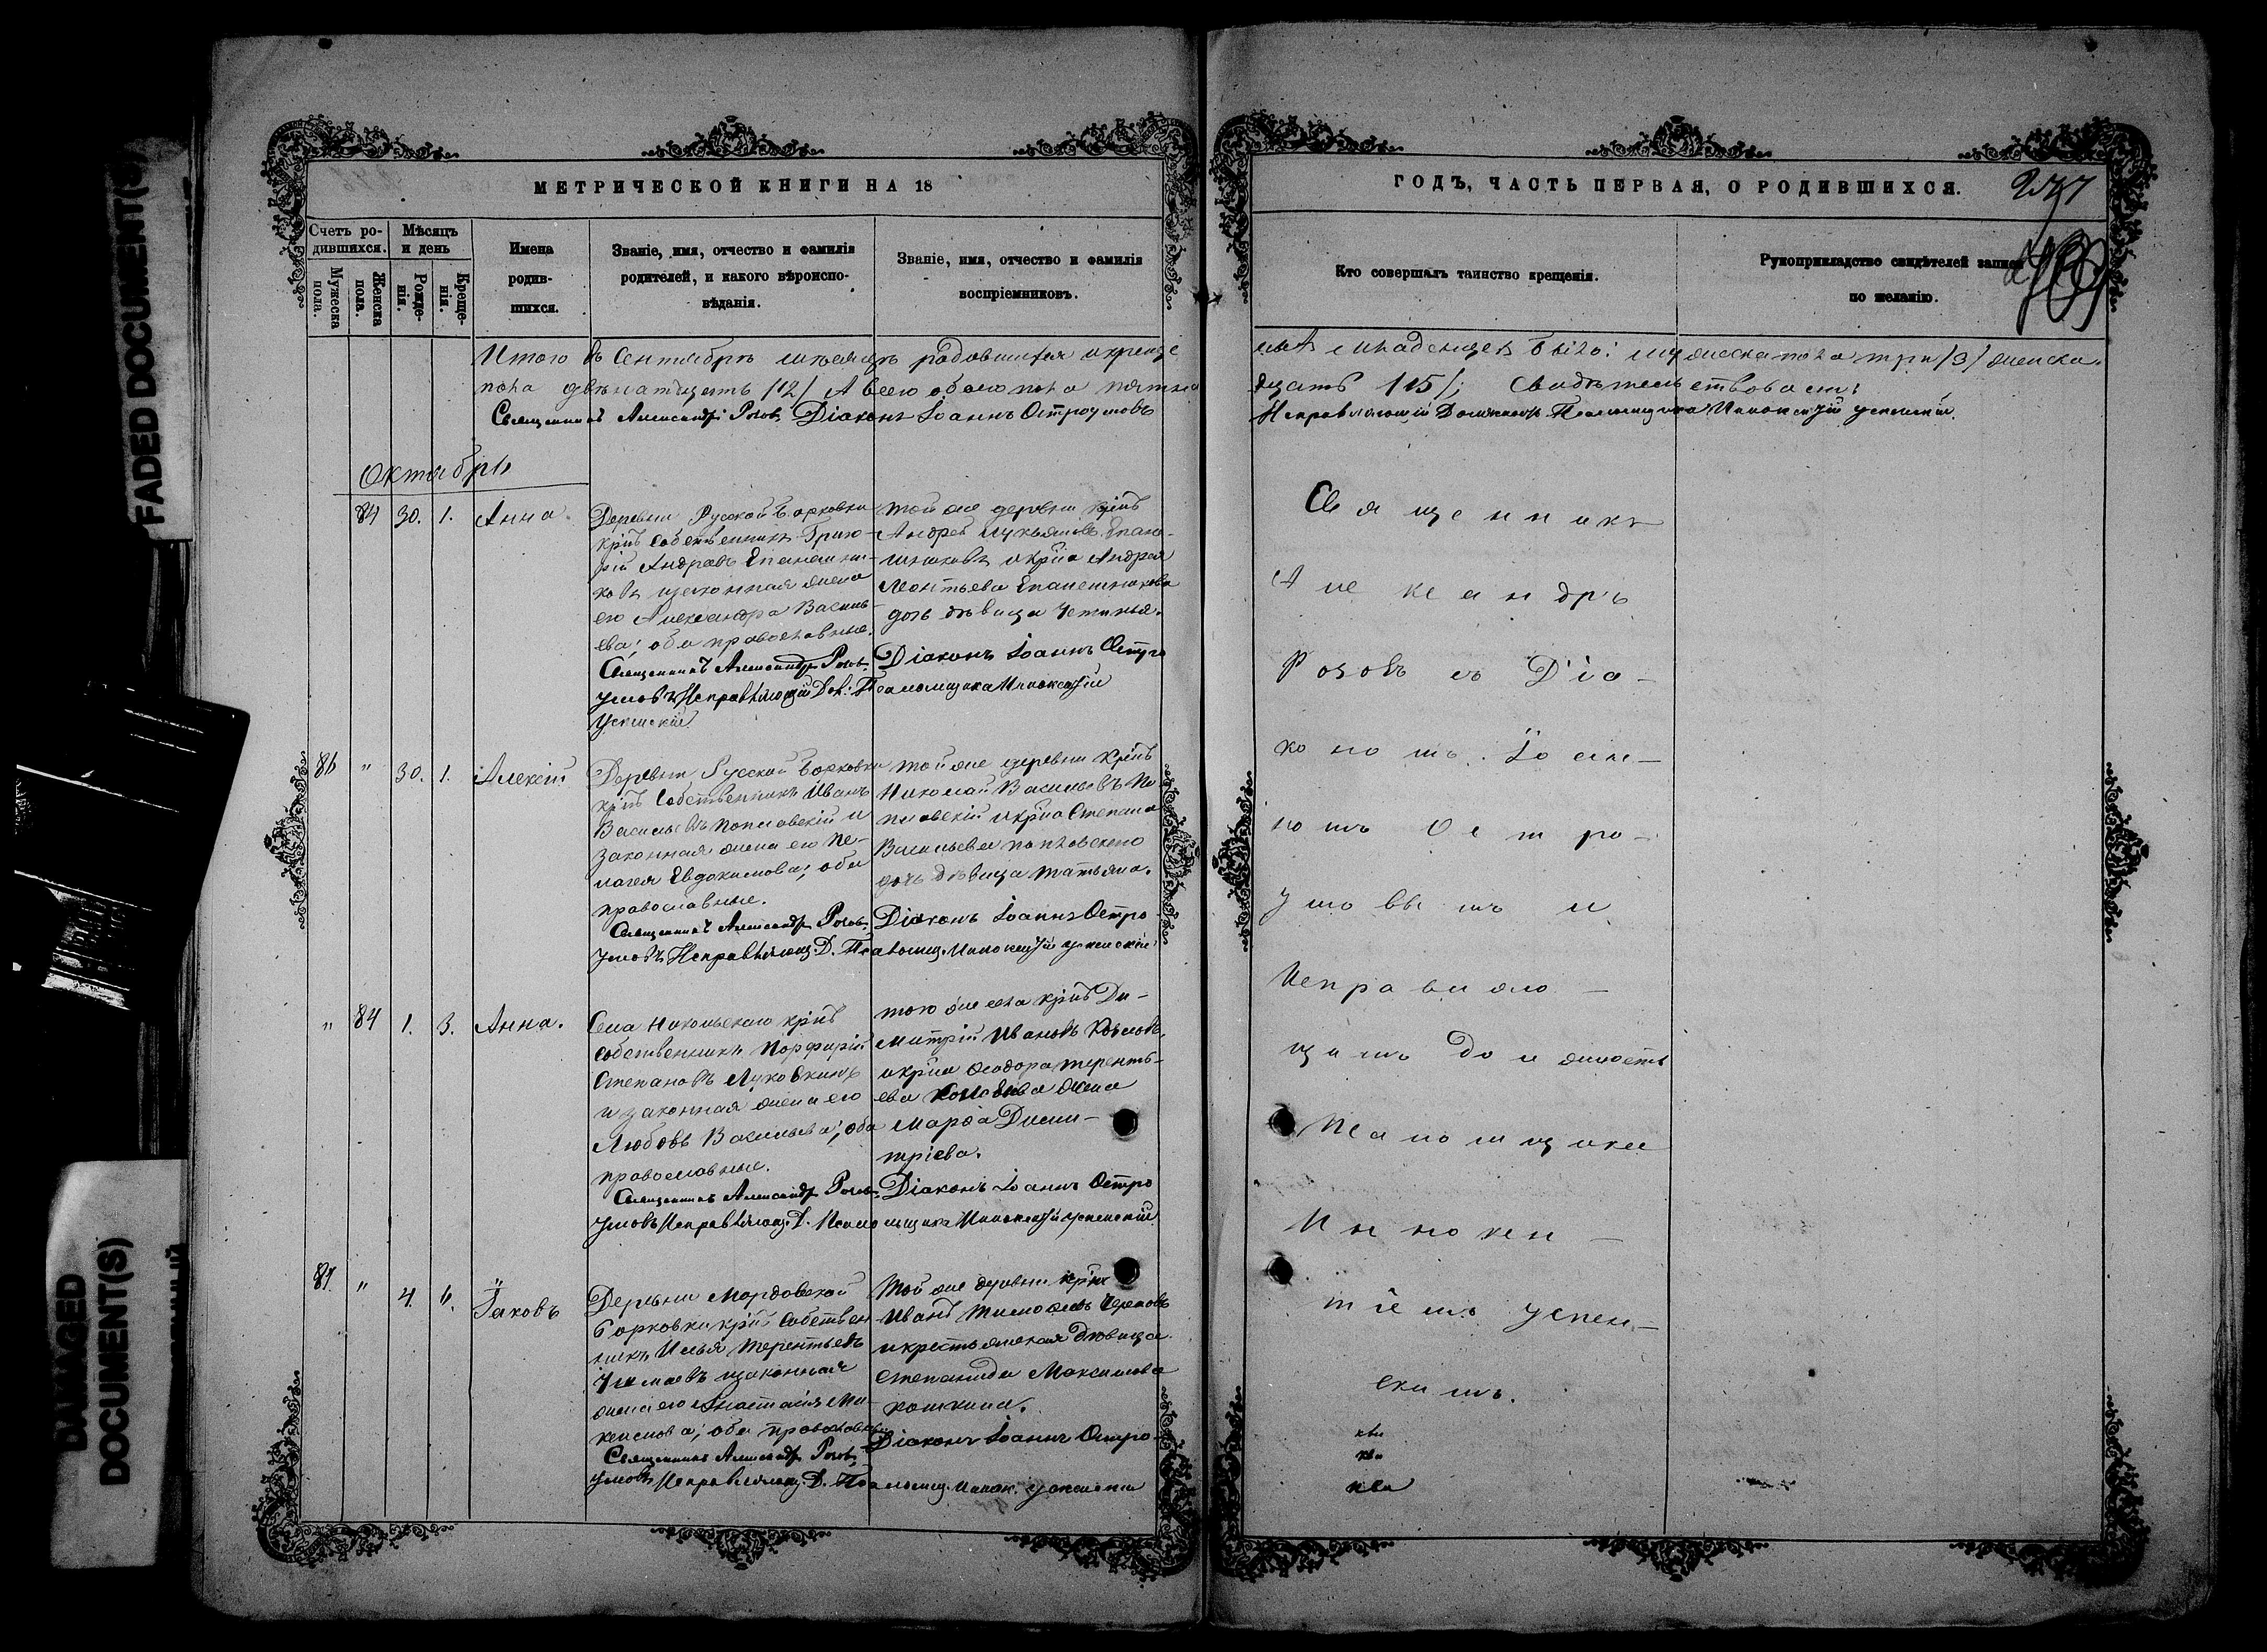 FADED DOCUMENT(S)
DAMAGED DOCUMENT(S)
МЕТРИЧЕСКОЙ КНИГИ НА 18
Счетъ родившихся.
Мужеска пола.
Женска пола.
Мѣсяцъ и день
Рожденія.
Крещенія.
Имена
родив-
шихся.
Званіе, имя, отчество и фамилія
родителей, и какого вѣроиспо-
вѣданія.
Званіе, имя, отчество и фамилія
воспріемниковъ.
Итого въ Сентябрѣ мѣсяцѣ родившихся и креще
пола двѣнатцать /12/ А всего обоего пола пятна
Священникъ Александръ Розов, Діаконъ Іоаннъ Остроумовъ
Октябрь
84 30. 1. Анна.
Деревни Русской Борковки
крнъ Собственникъ Григо-
рій Андреевъ
законная жена
его Александра Василь-
ева; оба православные.
Священникъ Александръ Розов,
той же деревни крнъ
Андрей Лукьяновъ
и крна Андрея
Леонтьева
дочь дѣвица Устинья.
Діаконъ Іоаннъ Остро
умовъ Исправляющій Дол: Псаломщика Иннокентій
Успенскій
86 " 30. 1. Алексій
Деревни Русской Борковки
крнъ Собственникъ Иванъ
Васильевъ Поплавскій и
законная жена его Пе-
лагея Евдокимова; оба
православные.
Священникъ Александръ Розов,
той же деревни крнъ
Николай Васильевъ По-
плавскій и крна Степана
Васильева Поплавскаго
дочь дѣвица Татьяна.
Діаконъ Іоаннъ Остро
умовъ Исправляющ. Д. Псаломщ. Иннокентій Успенскій
" 84 1. 3. Анна.
Села Никольскаго крнъ
собственникъ Порфирій
Степановъ
и законная жена его
Любовь Васильева; оба
православные.
Священникъ Александръ Розов,
того же села крнъ Ди-
митрій Ивановъ Козловъ
и крна Ѳеодора Теренть-
ева жена
Марѳа Дими-
тріева.
Діаконъ Іоаннъ Остро
умовъ Исправляющ. Д. Псаломщика Иннокентій Успенскій
87. " 4. 6. Іаковъ
Деревни Мордовской
Борковки крнъ Собствен
никъ Илья Терентьевъ
законная
жена его Анастасія Ма
ксимова; оба православные
Священникъ Александръ Розов,
той же деревни крнъ
Иванъ Тимоѳеевъ
и крестьянская дѣвица
Степанида Максимова
Діаконъ Іоаннъ Остро
умовъ Исправляющ. Д. Псаломщ. Иннок. Успенскій
ГОДЪ, ЧАСТЬ ПЕРВАЯ, О РОДИВШИХСЯ.
Кто совершалъ таинство крещенія.
Рукоприкладство свидѣтелей записи
по желанію.
ныхъ младенцевъ было: мужеска пола три /3/ женска
дцать /15/; Свидѣтельствовали:
Исправляющій Должность Псаломщика Иннокентій Успенскій.
Священникъ
Александръ
Розовъ съ Діа-
кономъ Іоан-
номъ Остро-
умовымъ и
Исправляю-
щимъ должность
Псаломщика
Иннокен-
тіемъ Успен-
скимъ.